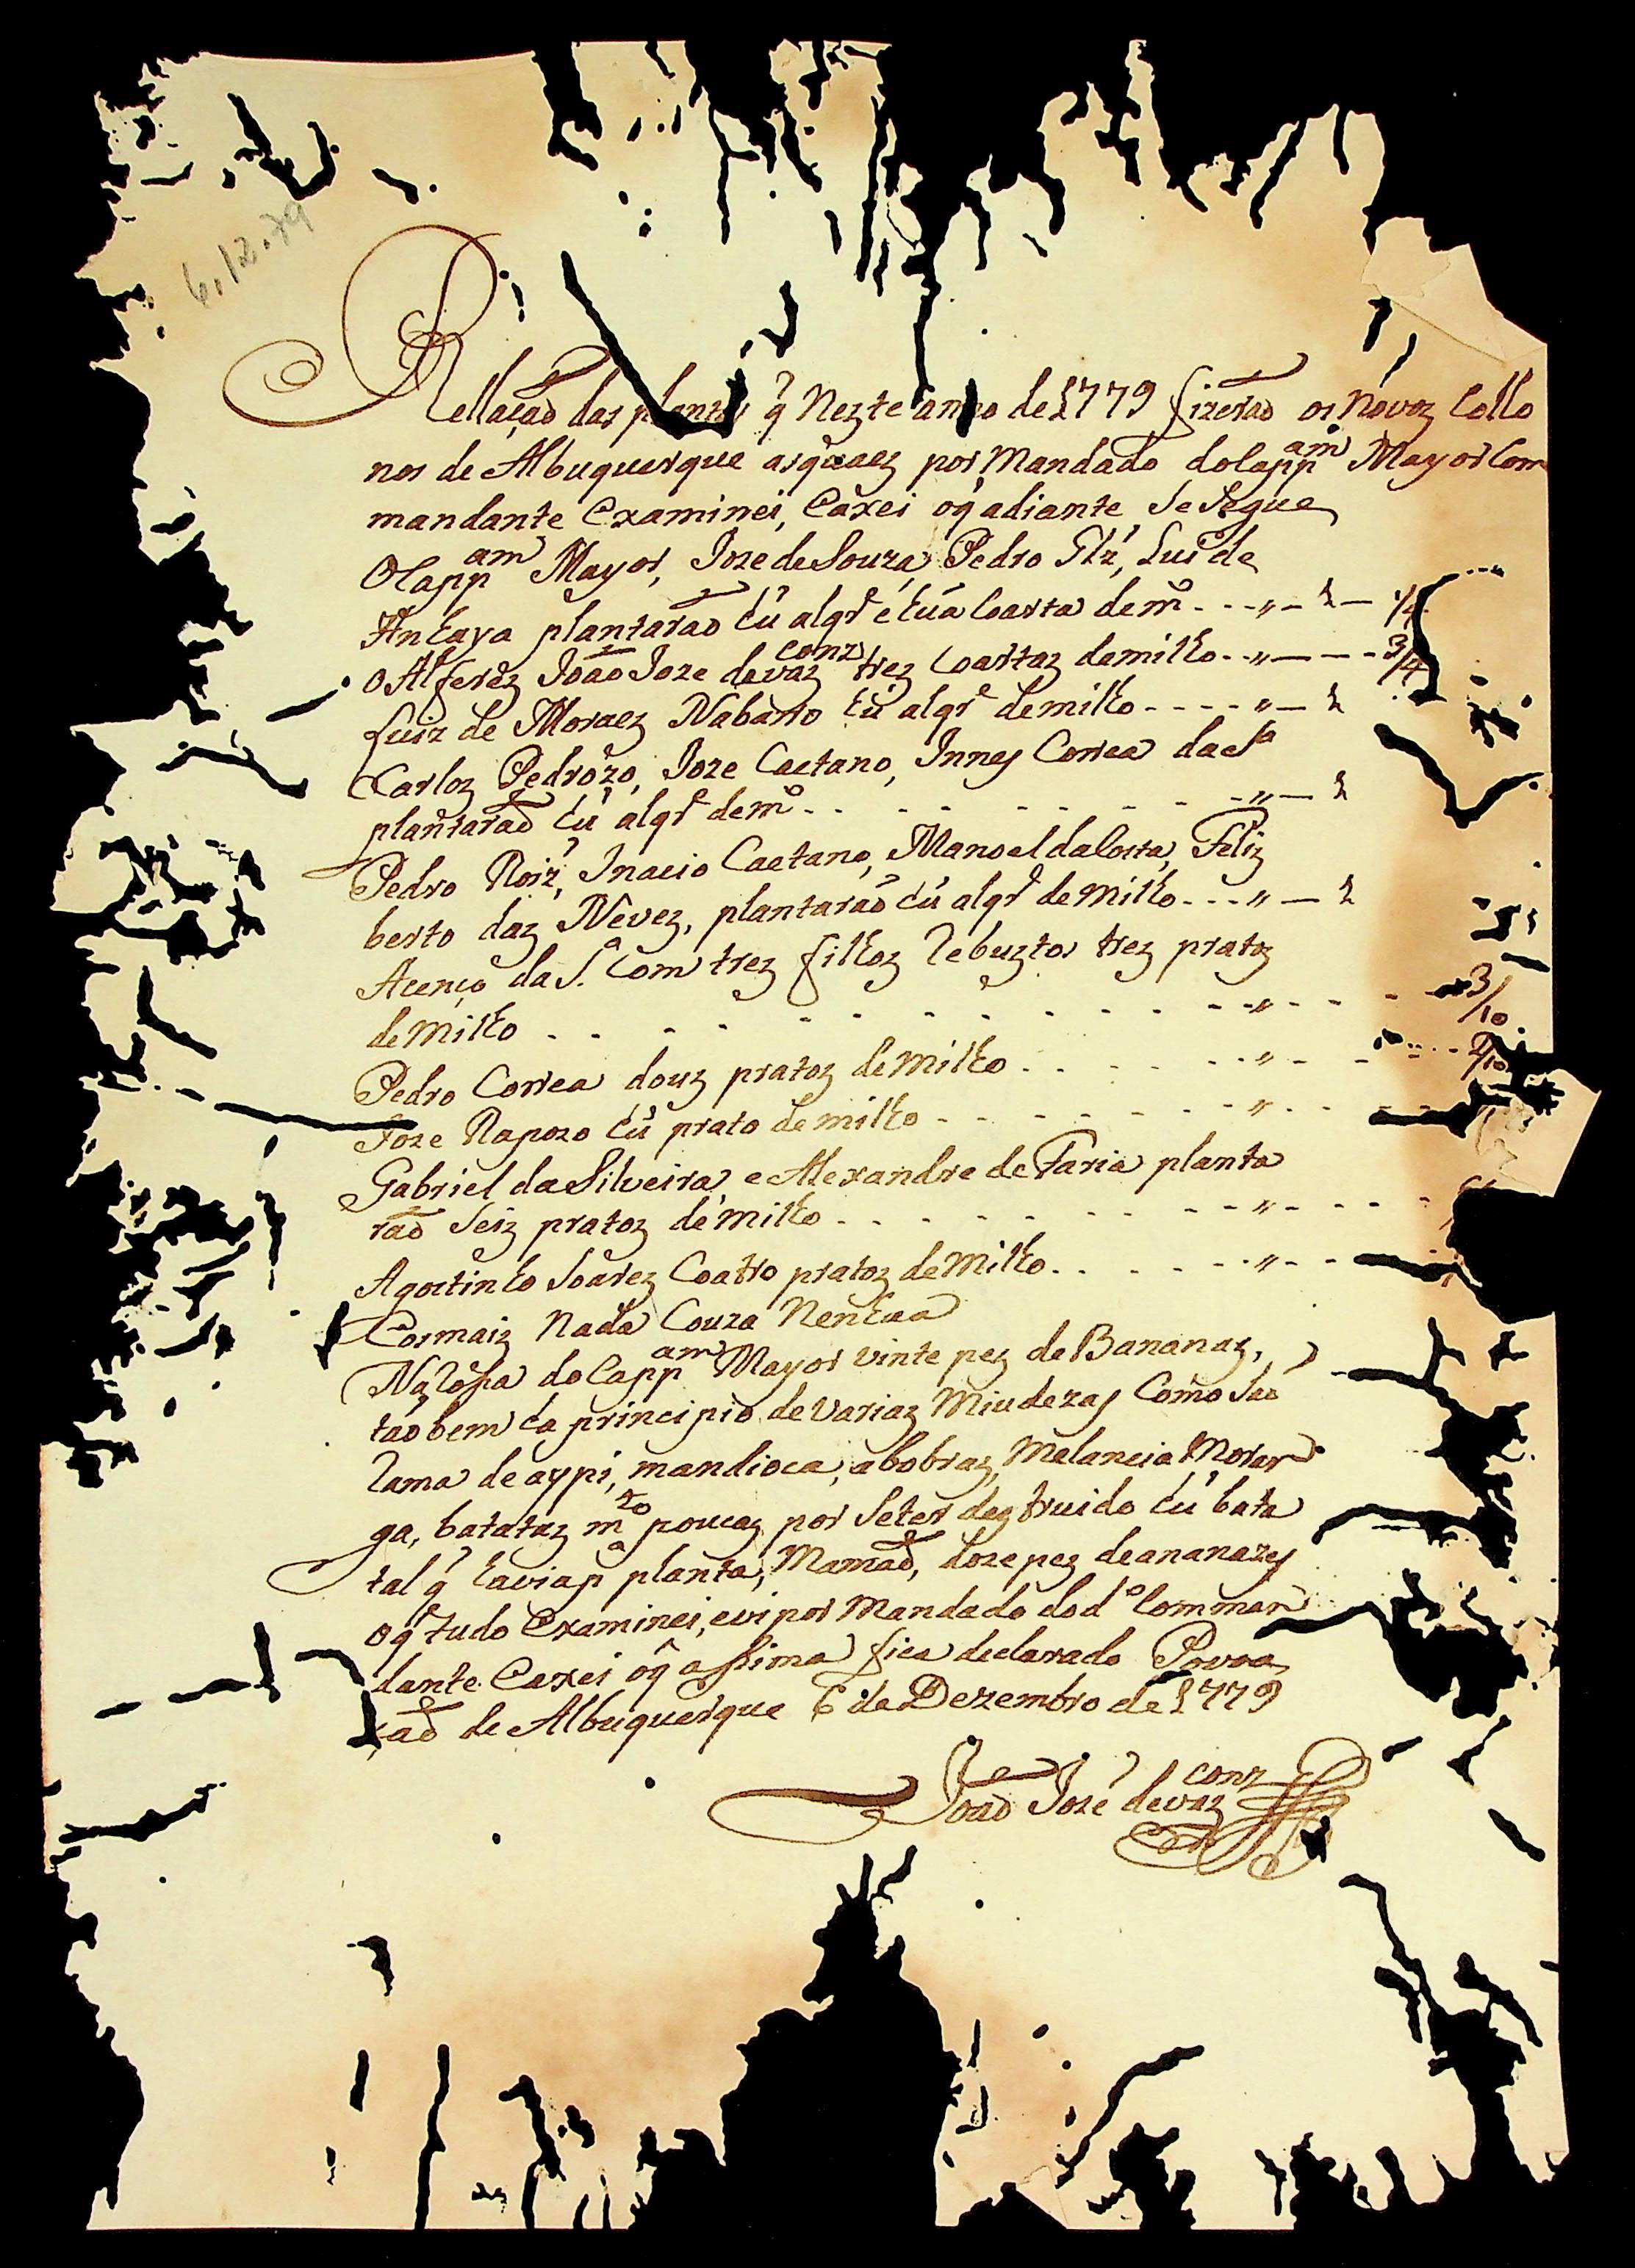 6.12.79
Rellação das plantas q̃ Nezte anno de 1779 fizerão os Novoz Collo
nos de Albuquerque asquaez por Mandado do Cappam Mayor Com
mandante Examinei, Eaxei oq̃ adiante SeSegue
OCappam Mayor, Joze de Souza, Pedro Glz', Luis de
Anhaya plantarão hũ alqr ̃e hũa Coarta de mo - - - " - 1 - 1/4
O Alferez João Joze de vazconz trez Coartaz de milho - - " - - - 3/4
Luiz de Moraez Nabarro hũ alqr de milho - - - - " - 1
Carloz Pedrozo, Joze Caetano, Innes Correa da Sa
plantarão hũ alqr de mo - - - - - - - " - 1
Pedro Roiz', Inacio Caetano, Manoel da Costa, Feliz
berto daz Nevez, plantarão hũ alqr de Milho - - - " - 1
Acenço da Sa Com trez filhoz Rebuztos trez pratoz
de Milho - - - - - - - - - - - " - - - 3/10
Pedro Correa douz pratoz de Milho - - - - - " - - - 2/10
Joze Rapozo hũ prato de milho - - - - - - " - - -
Gabriel da Silveira, e Alexandre de Faria planta
rão Seiz pratoz de Milho - - - - - - - " - - -
Agostinho Soarez Coatro pratoz de Milho - - - - - " - -
Pormaiz Nada Couza Nenhuã
Na Rossa do Cappam Mayor vinte pez de Bananaz,
tãobem ha principio de Variaz Miudezas Como São
Rama de aypi, mandioca, abobraz, Melancia Moran
ga, batataz mto poucaz por Seter deztruido hũ bata
tal q̃ havia pa planta, Mamão, doze pez de ananazes
oq̃ tudo Examinei, evi por Mandado do do Comman
dante Eaxei oq̃ assima fica declarado Povoa
ção de Albuquerque 6 de Dezembro de 1779
João Joze de vazconz